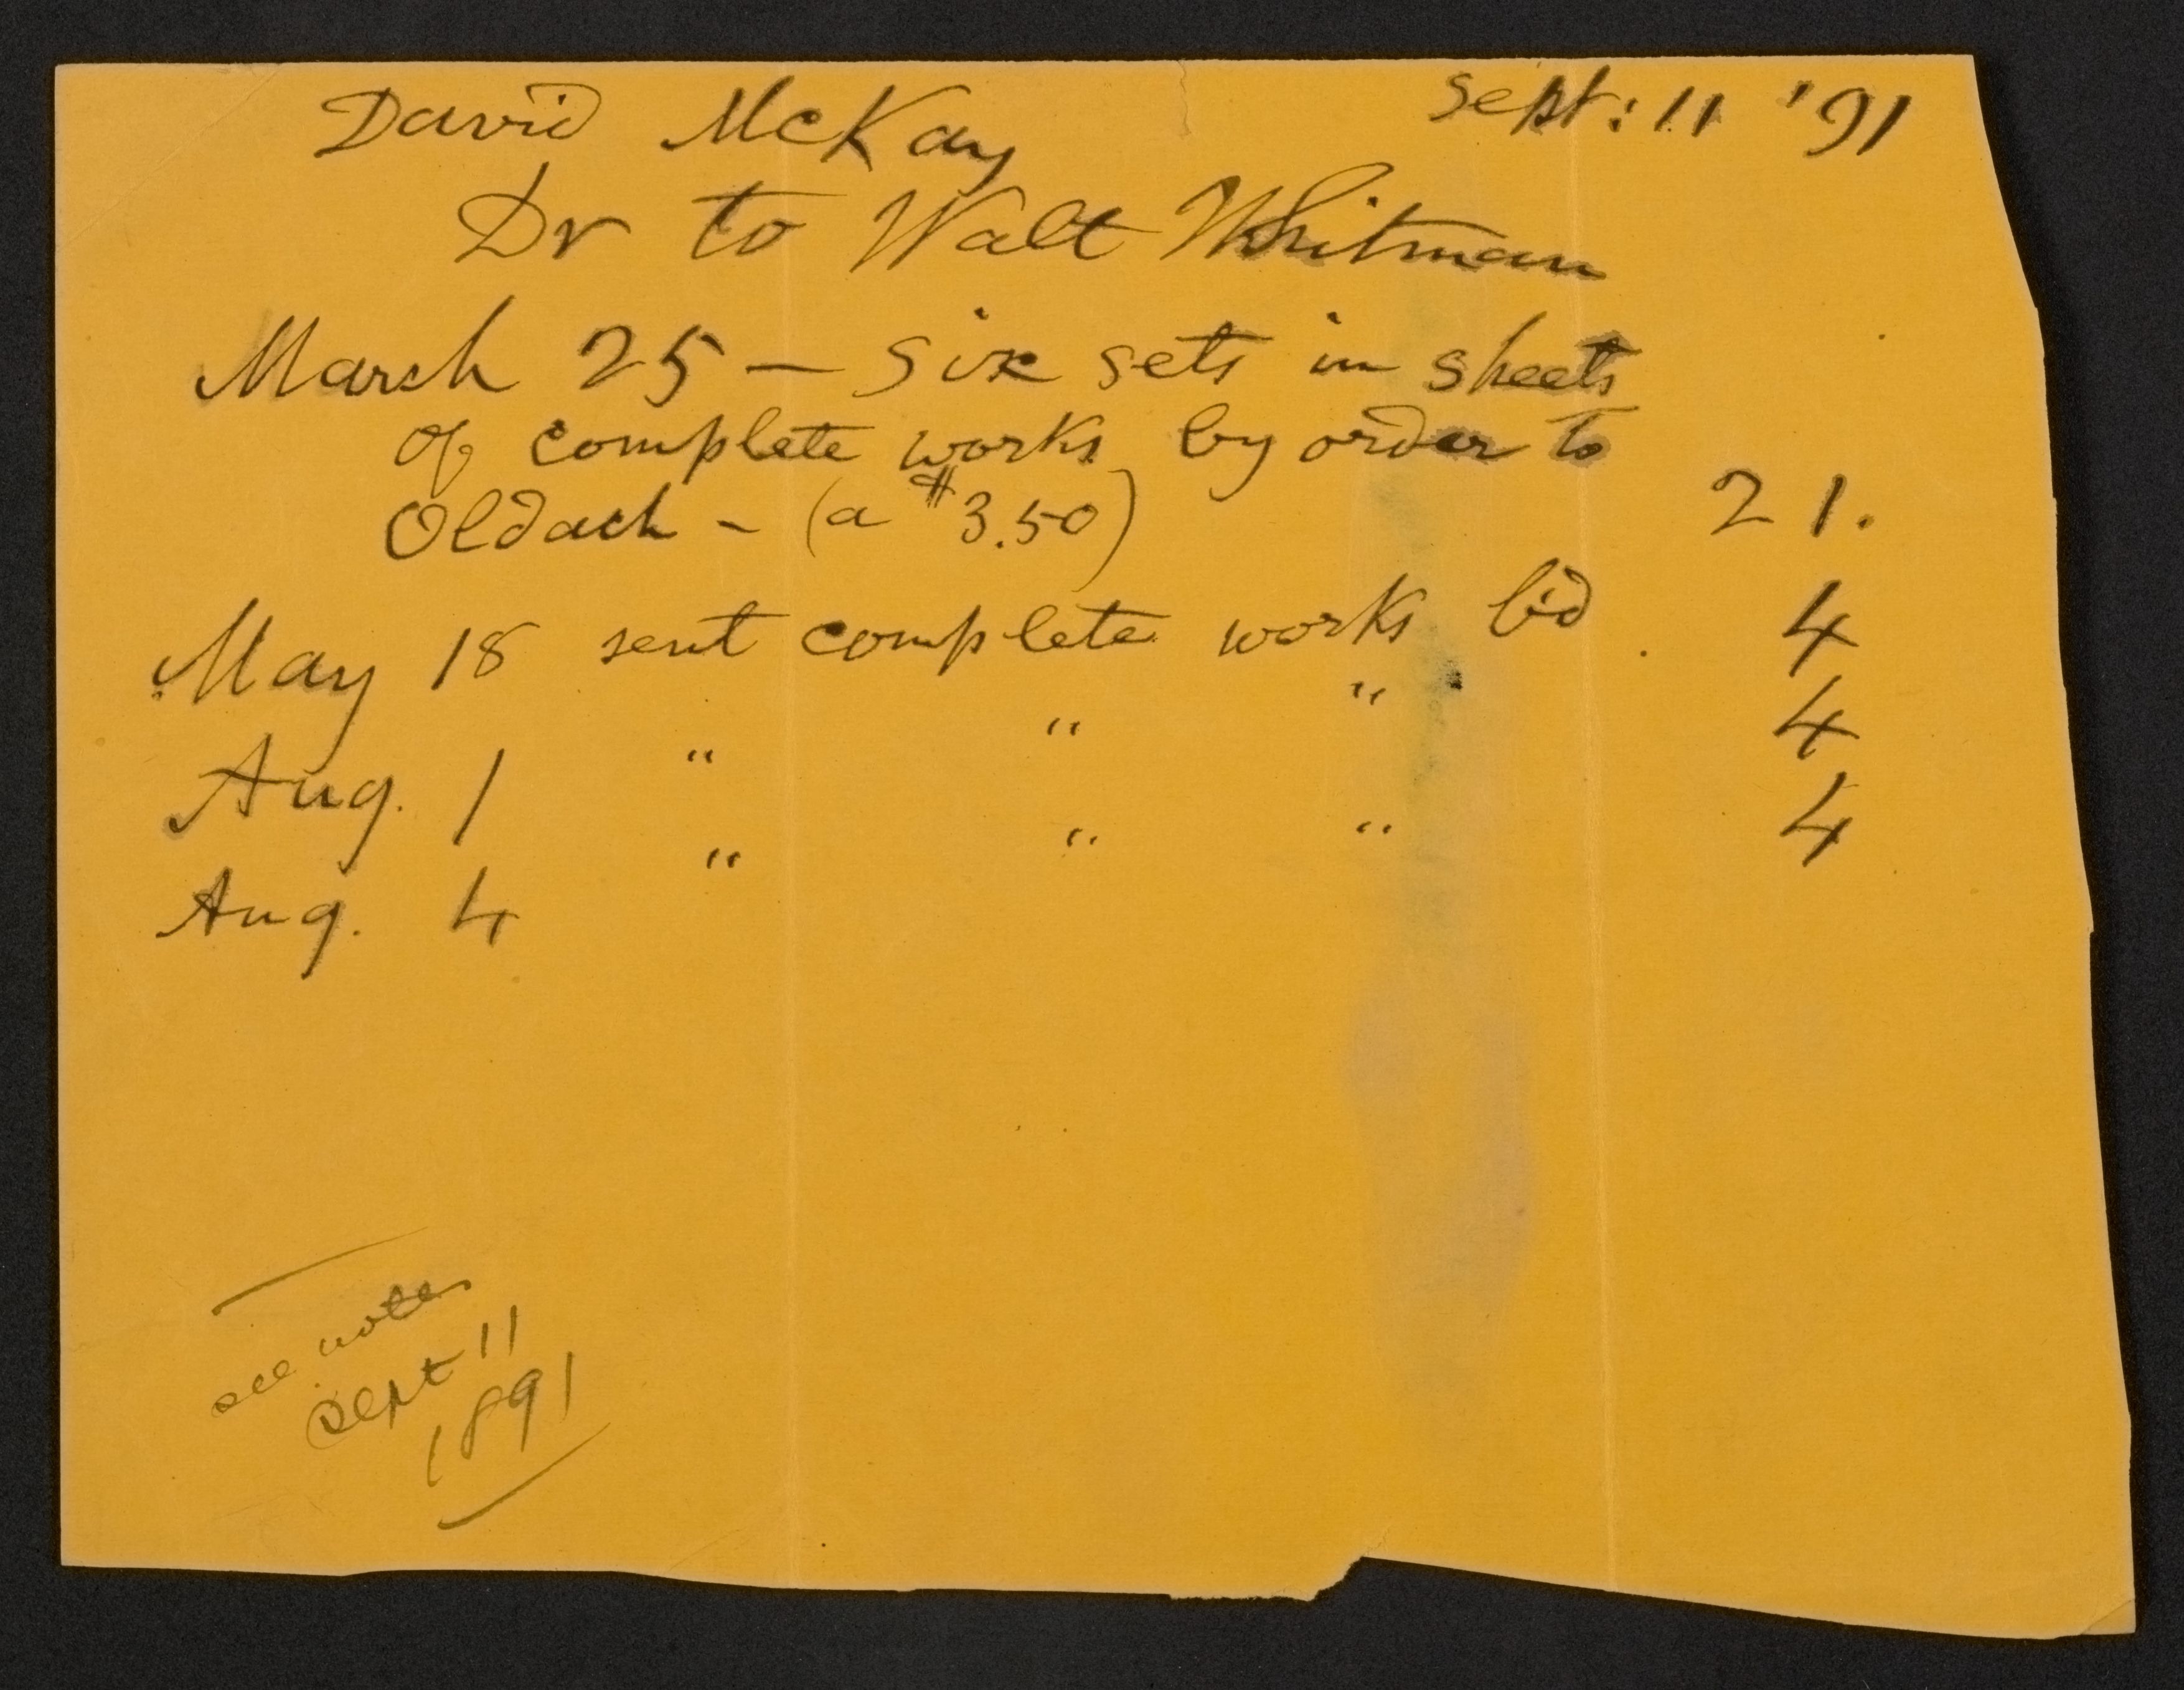 Sept: 11 '91
David McKay
Dr to Walt Whitman
March 25 — six sets in sheets
of complete works by order to
Oldach – (a $3.50) 21.
May 18 sent complete works b'd . 4
Aug. 1 " " " 4
Aug. 4 " " " 4
see notes
Sept 11
1891